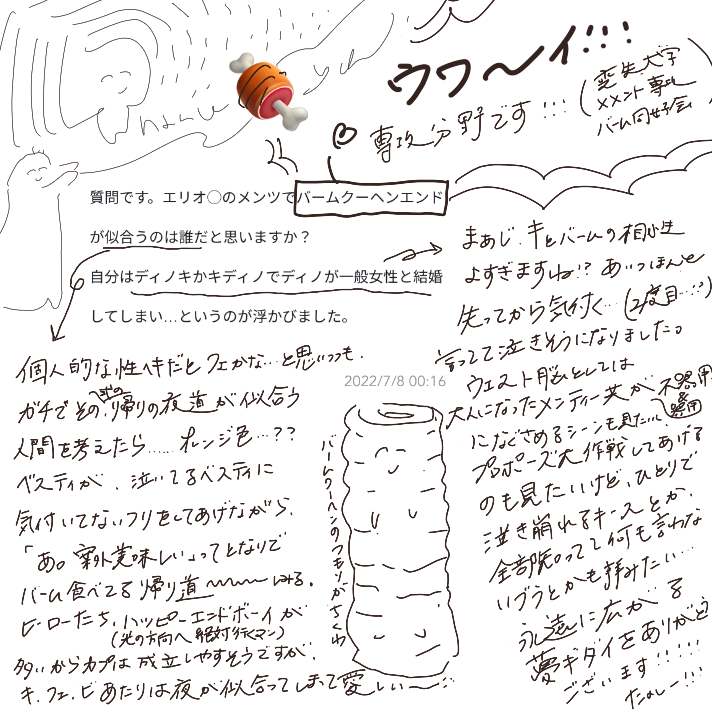 ウワ〜イ!!!
専攻分野です!!!
(変失大学
メメント専攻
バーム同好会
質問です。エリオ◯のメンツでバームクーヘンエンド
が似合うのは誰だと思いますか？
自分はディノキかキディノでディノが一般女性と結婚
してしまい…というのが浮かびました。
2022/7/8 00:16
個人的な性ヘキだとフェかな…と思いつつも、
ガチでその式の帰りの夜道が似合う
人間を考えたら…… オレンジ色…??
ベスティが、泣いてるベスティに
気付いてないフリをしてあげながら、
「あ。案外美味しい」ってとなりで
バーム食べてる帰り道〜〜〜
ヒーローたち、ハッピーエンドボーイが
(光の方向へ絶対行くマン)
多いからカプは成立しやすそうですが、
キ、フェ、ビあたりは夜が似合ってしまって愛しい〜
バームクーヘンのつもりがちくわ
まぁじ、キとバームの相性
よすぎますね!? あいつほんと
失ってから気付く…(2度目…!?)
言ってて泣きそうになりました。
ウエスト脳としては
大人になったメンティー共が不器用
器用
になぐさめるシーンも見たいし
プロポーズ大作戦してあげる
のも見たいけど、ひとりで
泣き崩れるキースとか、
全部隠って何も言わない
ブラとかも拝みたい…
永遠に広がる
夢ギダイをありがとう
ございます!!!!!
たのしー!!!